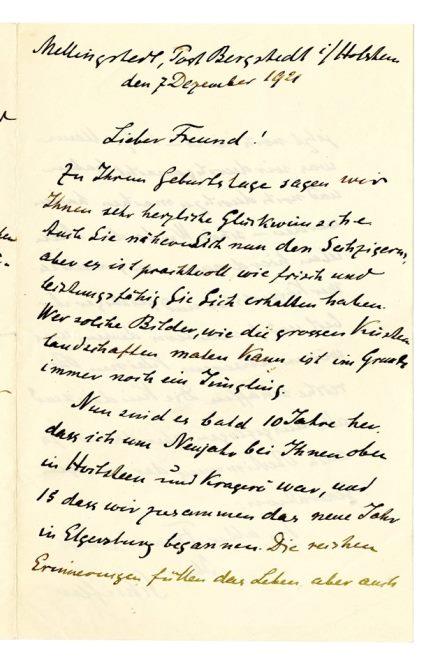 Mellingstedt, Post Bergstedt i/Holstein
den 7 Dezember 1921
Lieber Freund!
Zu Ihrem Geburtstage sagen wir
Ihnen sehr herzliche Glückwünsche
Auch Sie nähern Sich nun den Sechzigern,
aber es ist prachtvoll wie frisch und
leistungsfähig Sie Sich erhalten haben.
Wer solche Bilder, wie die grossen Küsten
landschaften malen kann ist im Grunde
immer noch ein Jüngling.
Nun sind es bald 10 Jahre her
dass ich um Neujahr bei Ihnen oben
in Hvitsteen und Kragerö war, und
15 dass wir zusammen das neue Jahr
in Elgersburg begannen. Die reichen
Erinnerungen füllen das Leben aber auch